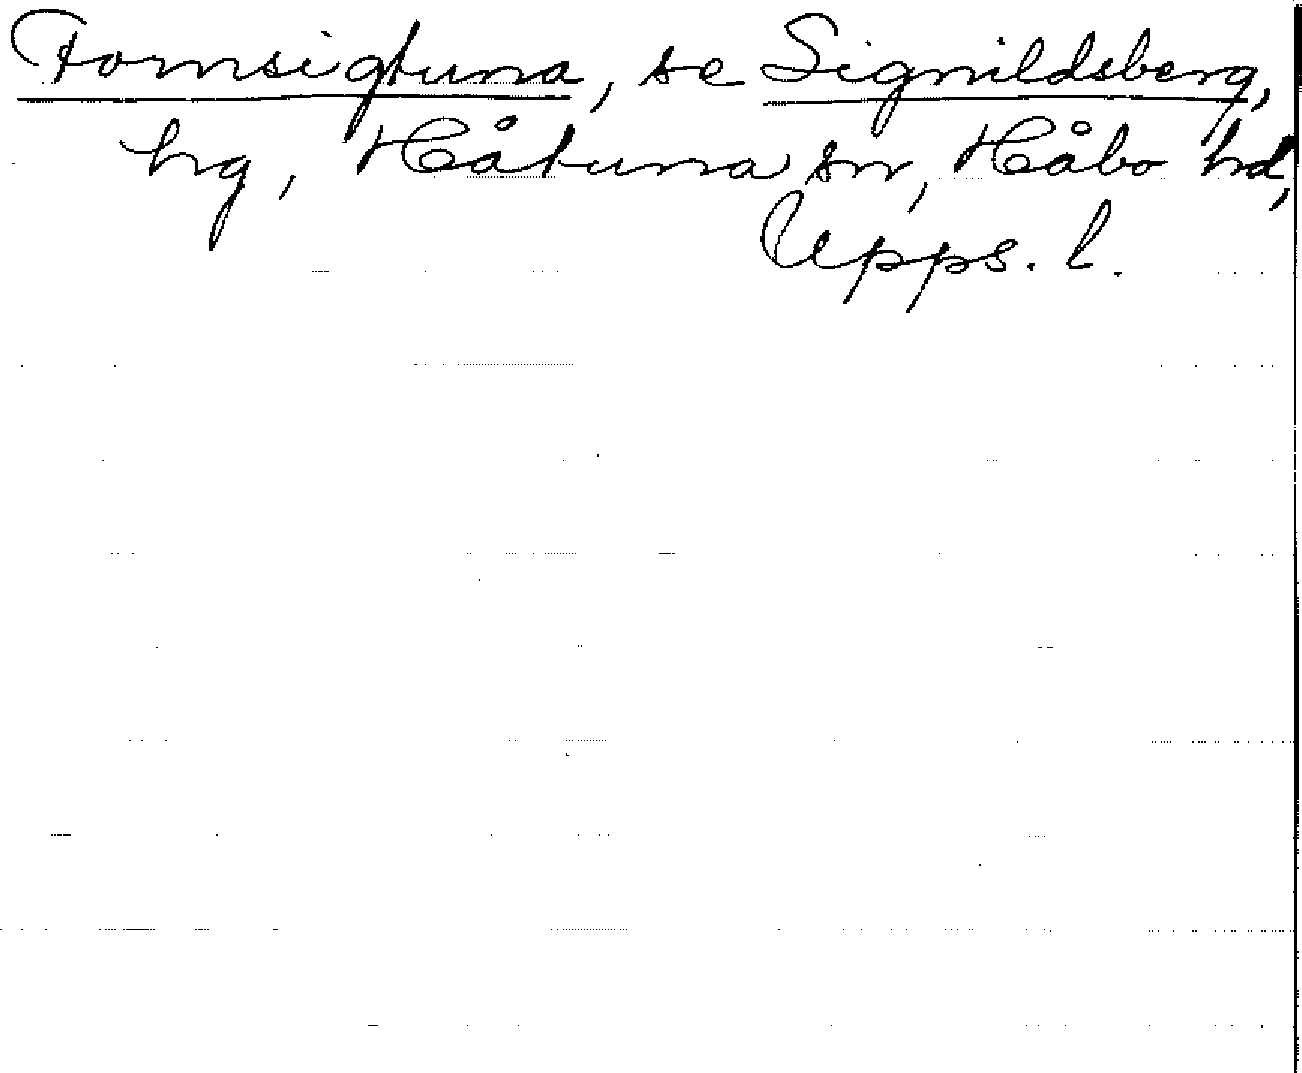 Fornsigtuna, se Signildsberg,
hg, Håtuna sn, Håbo hd,
Upps. l.